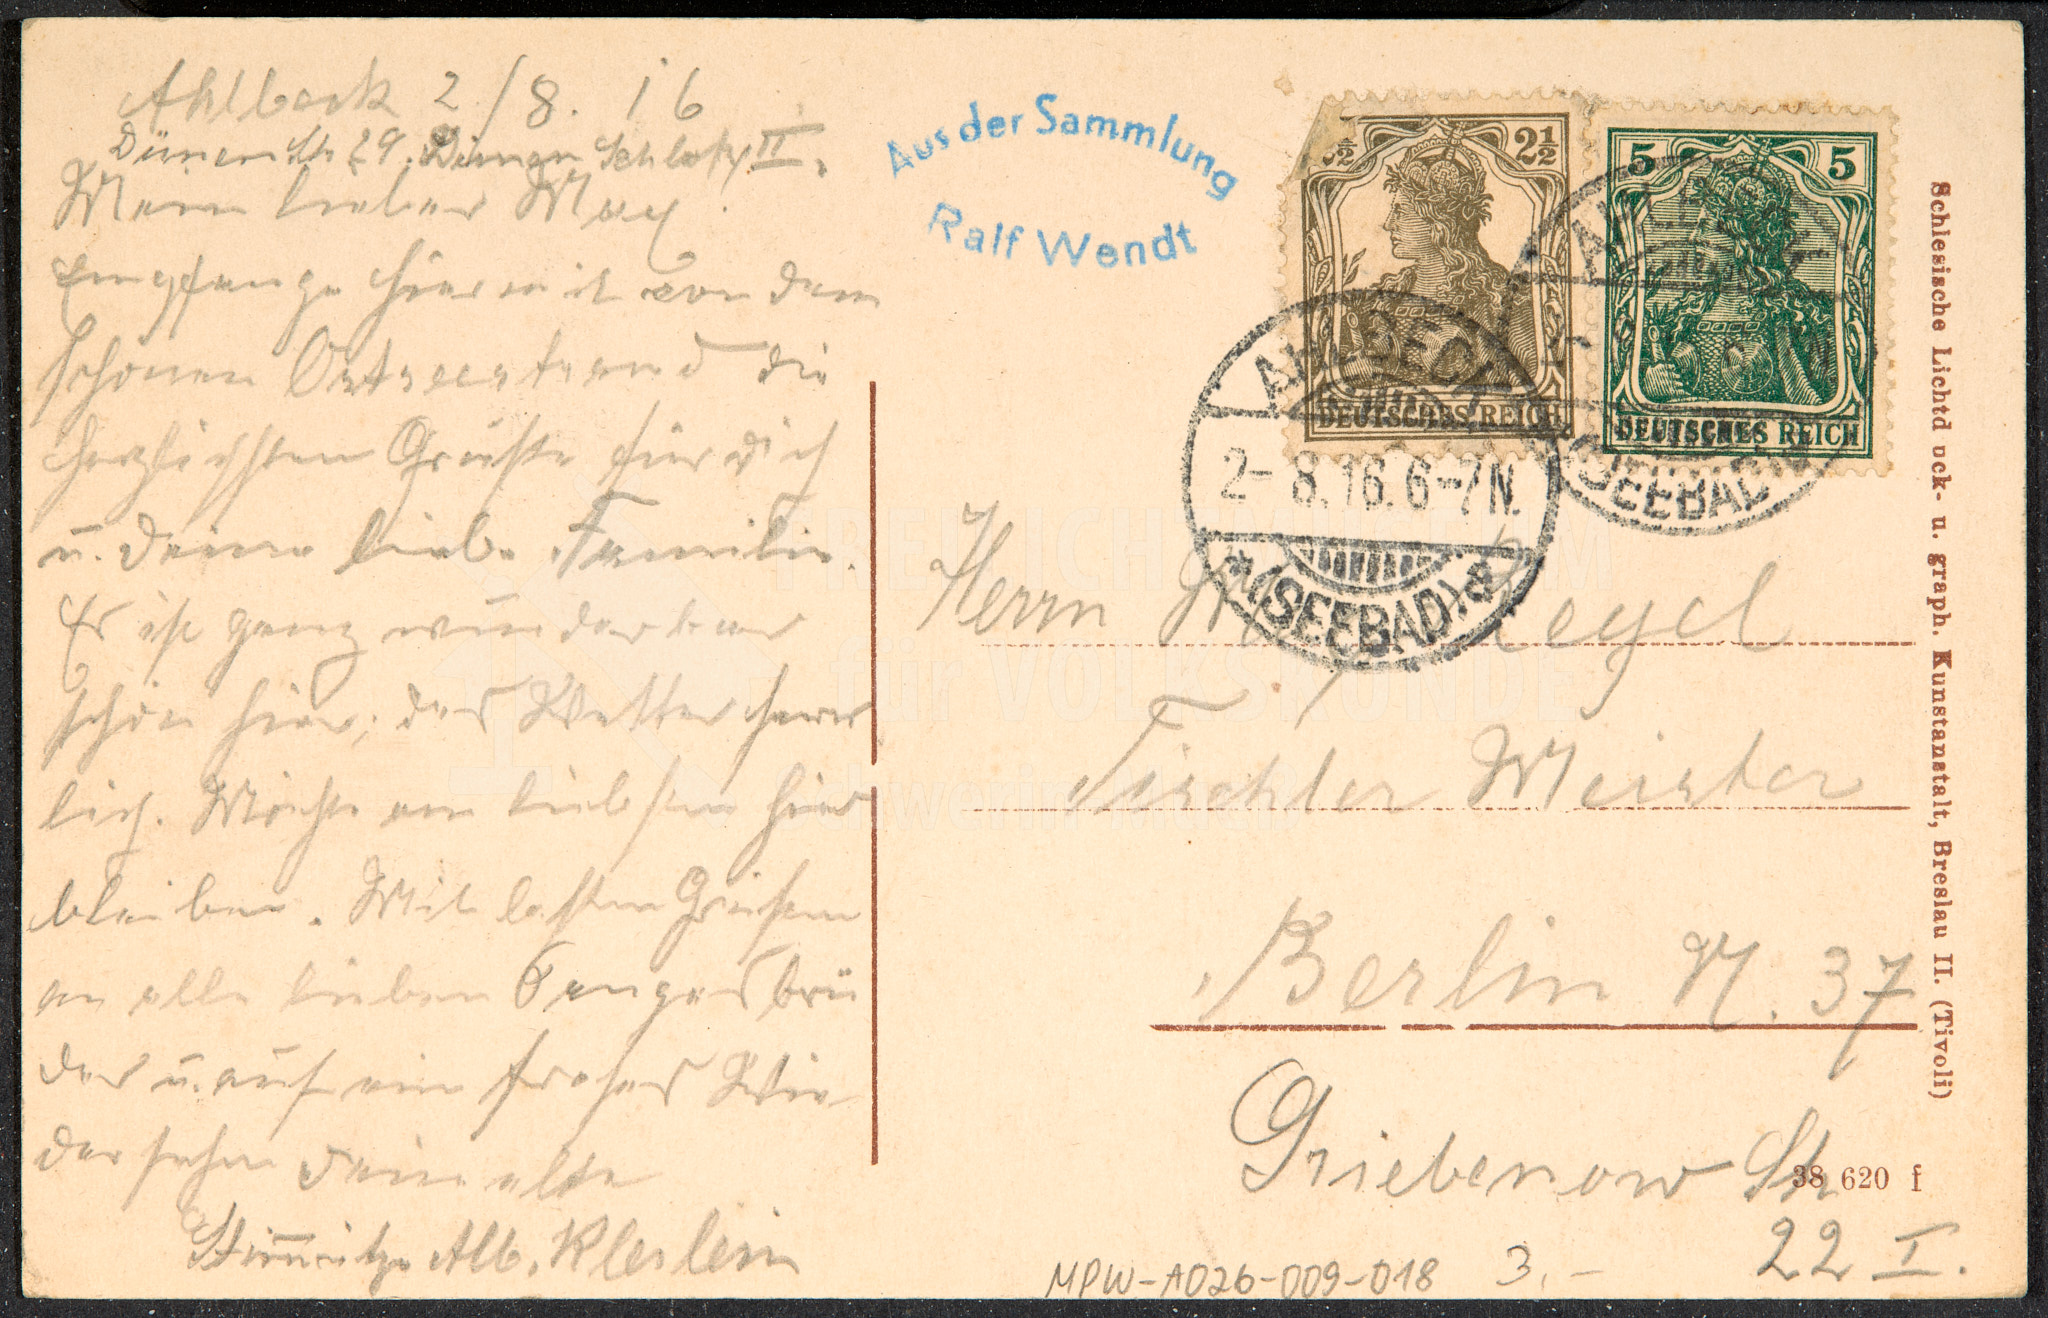 Ahlbeck 2/8. 16
Dünen Str 29. Dünen Schloß II.
Mein lieber Max
Empfange hiermit von dem
schönen Ostseestrand die
herzlichsten Grüße für dich
u. deine liebe Familie.
Es ist ganz wunderbar
schön hier, das Wetter herr
lich. Möchte am liebsten hier
bleiben. Mit besten Grüßen
an alle lieben Sangesbrü
der u. auf ein frohes Wie
dersehn dein alte
Alb.
Aus der Sammlung
Ralf Wendt
2½ 2½
DEUTSCHES REICH
5 5
DEUTSCHES REICH
AHLBECK
2-8.16.6-7N.
*(SEEBAD)a
AHLBECK
(SEEBAD)
Herrn
Tischler Meister
Berlin N. 37
Griebenow Str
22 I.
38 620 f
MPW-A026-009-018 3.-
Schlesische Lichtd uck- u. graph. Kunstanstalt, Breslau II. (Tivoli)
FREILICHTMUSEUM
für VOLKSKUNDE
Schwerin Mueß